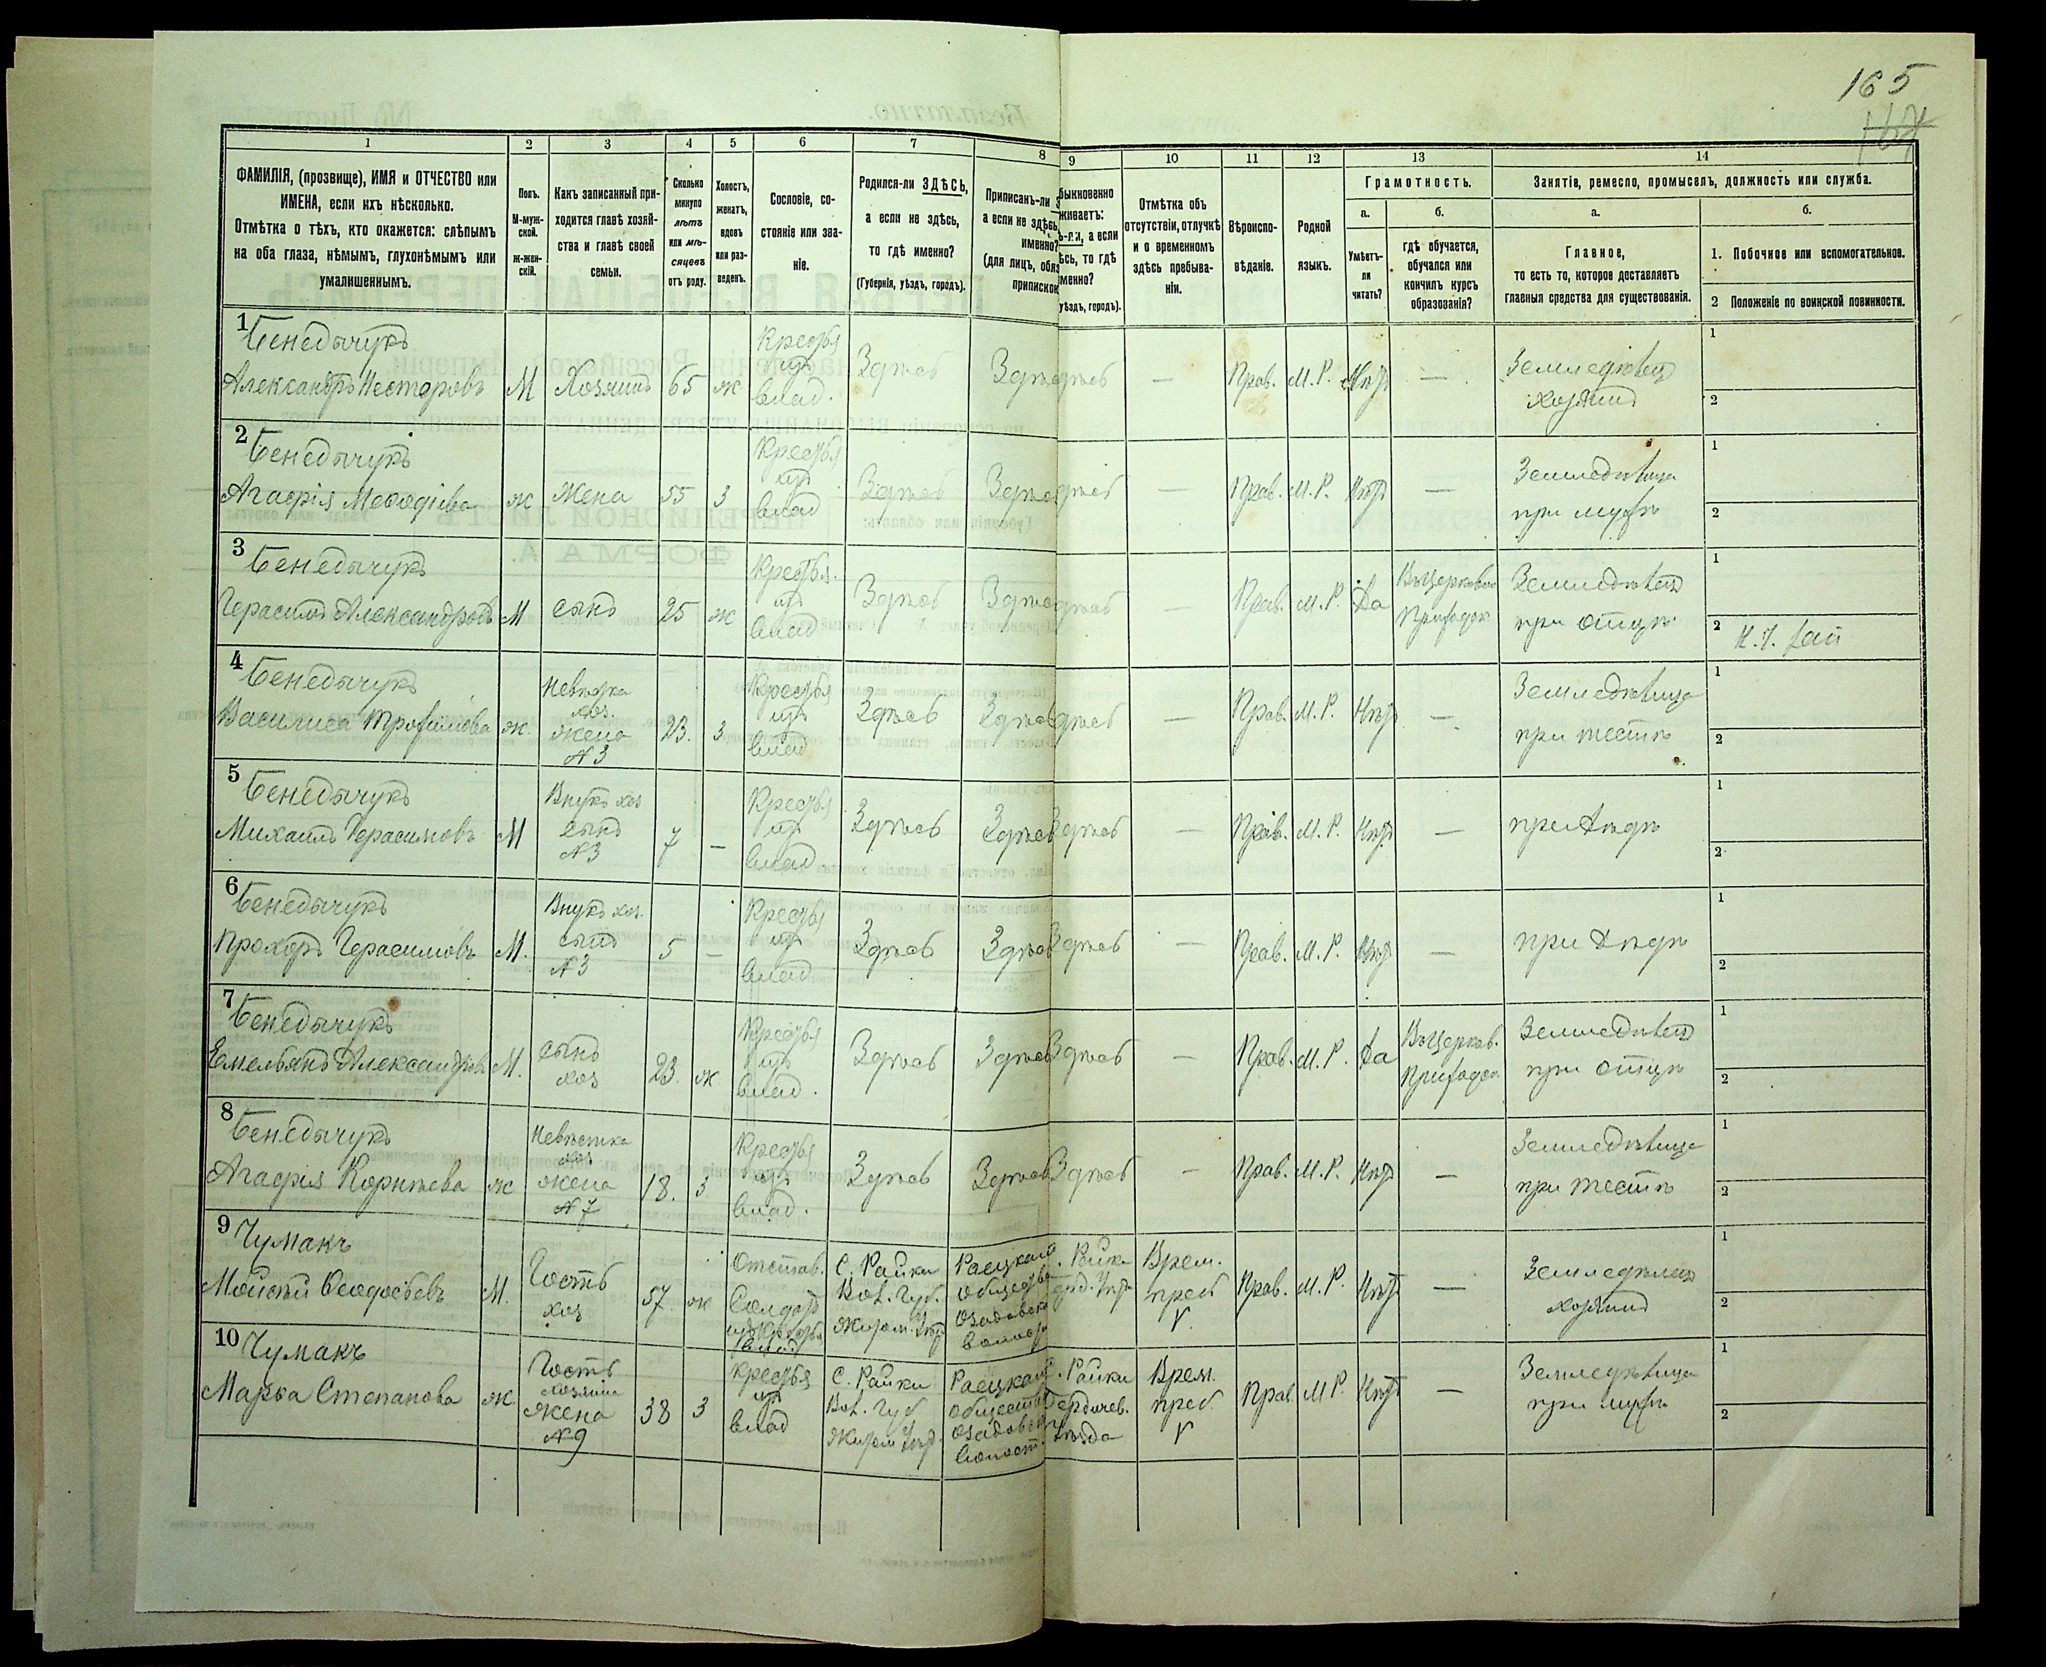 165
1
2
3
4
5
6
7
8
9
10
11
12
13
14
ФАМИЛІЯ, (прозвище), ИМЯ и ОТЧЕСТВО или
ИМЕНА, если ихъ нѣсколько.
Отмѣтка о тѣхъ, кто окажется: слѣпымъ
на оба глаза, нѣмымъ, глухонѣмымъ или
умалишеннымъ.
Полъ.
М-муж-
ской.
ж-жен-
скій.
Какъ записанный при-
ходится главѣ хозяй-
ства и главѣ своей
семьи.
Сколько
минуло
лѣтъ
или мѣ-
сяцевъ
отъ роду.
Холостъ,
женатъ,
вдовъ
или раз-
веденъ.
Сословіе, со-
стояніе или зва-
ніе.
Родился-ли ЗДѢСЬ,
а если не здѣсь,
то гдѣ именно?
(Губернія, уѣздъ, городъ).
Приписанъ-ли
а если не здѣсь
именно?
(для лицъ, обяз
припискою
быкновенно
живаетъ:
ь-ли, а если
ѣсь, то гдѣ
менно?
уѣздъ, городъ).
Отмѣтка объ
отсутствіи, отлучкѣ
и о временномъ
здѣсь пребыва-
ніи.
Вѣроиспо-
вѣданіе.
Родной
языкъ.
Грамотность.
а.
б.
Умѣетъ-
ли
читать?
гдѣ обучается,
обучался или
кончилъ курсъ
образованія?
Занятіе, ремесло, промыселъ, должность или служба.
а.
б.
Главное,
то есть то, которое доставляетъ
главныя средства для существованія.
1. Побочное или вспомогательное.
2 Положеніе по воинской повинности.
1 Бенедычукъ
Александръ Несторовъ М Хозяинъ 65 ж Крестья изъ влад. Здѣсь Здѣсь дѣсь — Прав. М. Р. Нѣтъ — Земледѣлец хозяинъ 1 2
2 Бенедычукъ
Агафія Меѳодіева ж Жена 55 з Крестья изъ влад Здѣсь Здѣсь дѣсь — Прав. М. Р. Нѣтъ — Земледѣлица при мужѣ 1 2
3 Бенедычукъ
Герасимъ Александровъ М сынъ 25 ж Крестья. изъ влад Здѣсь Здѣсь дѣсь — Прав. М. Р. Да Въ Церковно Приходск Земледѣлец при отцѣ 1 2
4 Бенедычукъ
Василиса Трофимова ж. Невѣстка хоз. жена N 3 23. з Крестья изъ влад Здѣсь Здѣсь дѣсь — Прав. М. Р. Нѣтъ — Земледѣлица при тестѣ 1 2
5 Бенедычукъ
Михаилъ Герасимовъ М Внукъ хоз сынъ N 3 7 — Крестья изъ влад Здѣсь Здѣсь Здѣсь — Прав. М. Р. Нѣтъ — при дѣдѣ 1 2
6 Бенедычукъ
Прохоръ Герасимовъ М. Внукъ хоз. сынъ N 3 5 — Крестья изъ влад. Здѣсь Здѣсь Здѣсь — Прав. М. Р. Нѣтъ — при дѣдѣ 1 2
7 Бенедычукъ
Емельянъ Александровъ М. сынъ хоз 23. ж Крестья изъ влад. Здѣсь Здѣсь Здѣсь — Прав. М. Р. Да Въ Церков. Приходск Земледѣлец при отцѣ 1 2
8 Бенедычукъ
Агафія Корнѣева ж Невѣстка хоз жена N 7 18. з Крестья изъ влад. Здѣсь Здѣсь Здѣсь — Прав. М. Р. Нѣтъ — Земледѣлица при тестѣ 1 2
9 Чумакъ
Мойсѣй Ѳеодосьевъ М. Гость хоз 57 ж Отстав. Солдатъ С. Райки Вол. Губ. Житом. Раецкаго общества Райки Врем. преб V Прав. М. Р. Нѣтъ — Земледѣлец хозяинъ 1 2
10 Чумакъ
Марья Степанова ж Гость хозяина жена N 9 38 з Крестья изъ влад С. Райки Вол. Губ Житом Раецкаго общества Райки Бердичев. уѣзда Врем. преб V Прав М Р. Нѣтъ — Земледѣлица при мужѣ 1 2